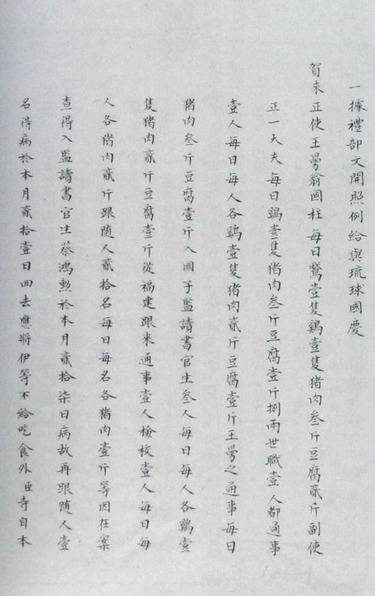 一據禮部文開照例給與琉球國慶
賀來正使王舅翁國柱每日鵞壹隻鷄壹隻猪肉叁斤豆腐貳斤副使
正一大夫每日鷄壹隻猪肉叁斤豆腐壹斤捌兩世職壹人都通事
壹人每日每人各鷄壹隻猪肉貳斤豆腐壹斤王舅之通事每日
猪肉叁斤豆腐壹斤入國子監讀書官生叁人每日每人各鷄壹
隻猪肉貳斤豆腐壹斤從福建跟來通事壹人檢校壹人每日每
人各猪肉貳斤跟隨人貳拾名每日每名各猪肉壹斤等因在案
查得入監讀書官生蔡鴻勲於本月貳拾柒日病故再跟隨人壹
名得病於本月貳拾壹日回去應將伊等不給吃食外臣寺自本